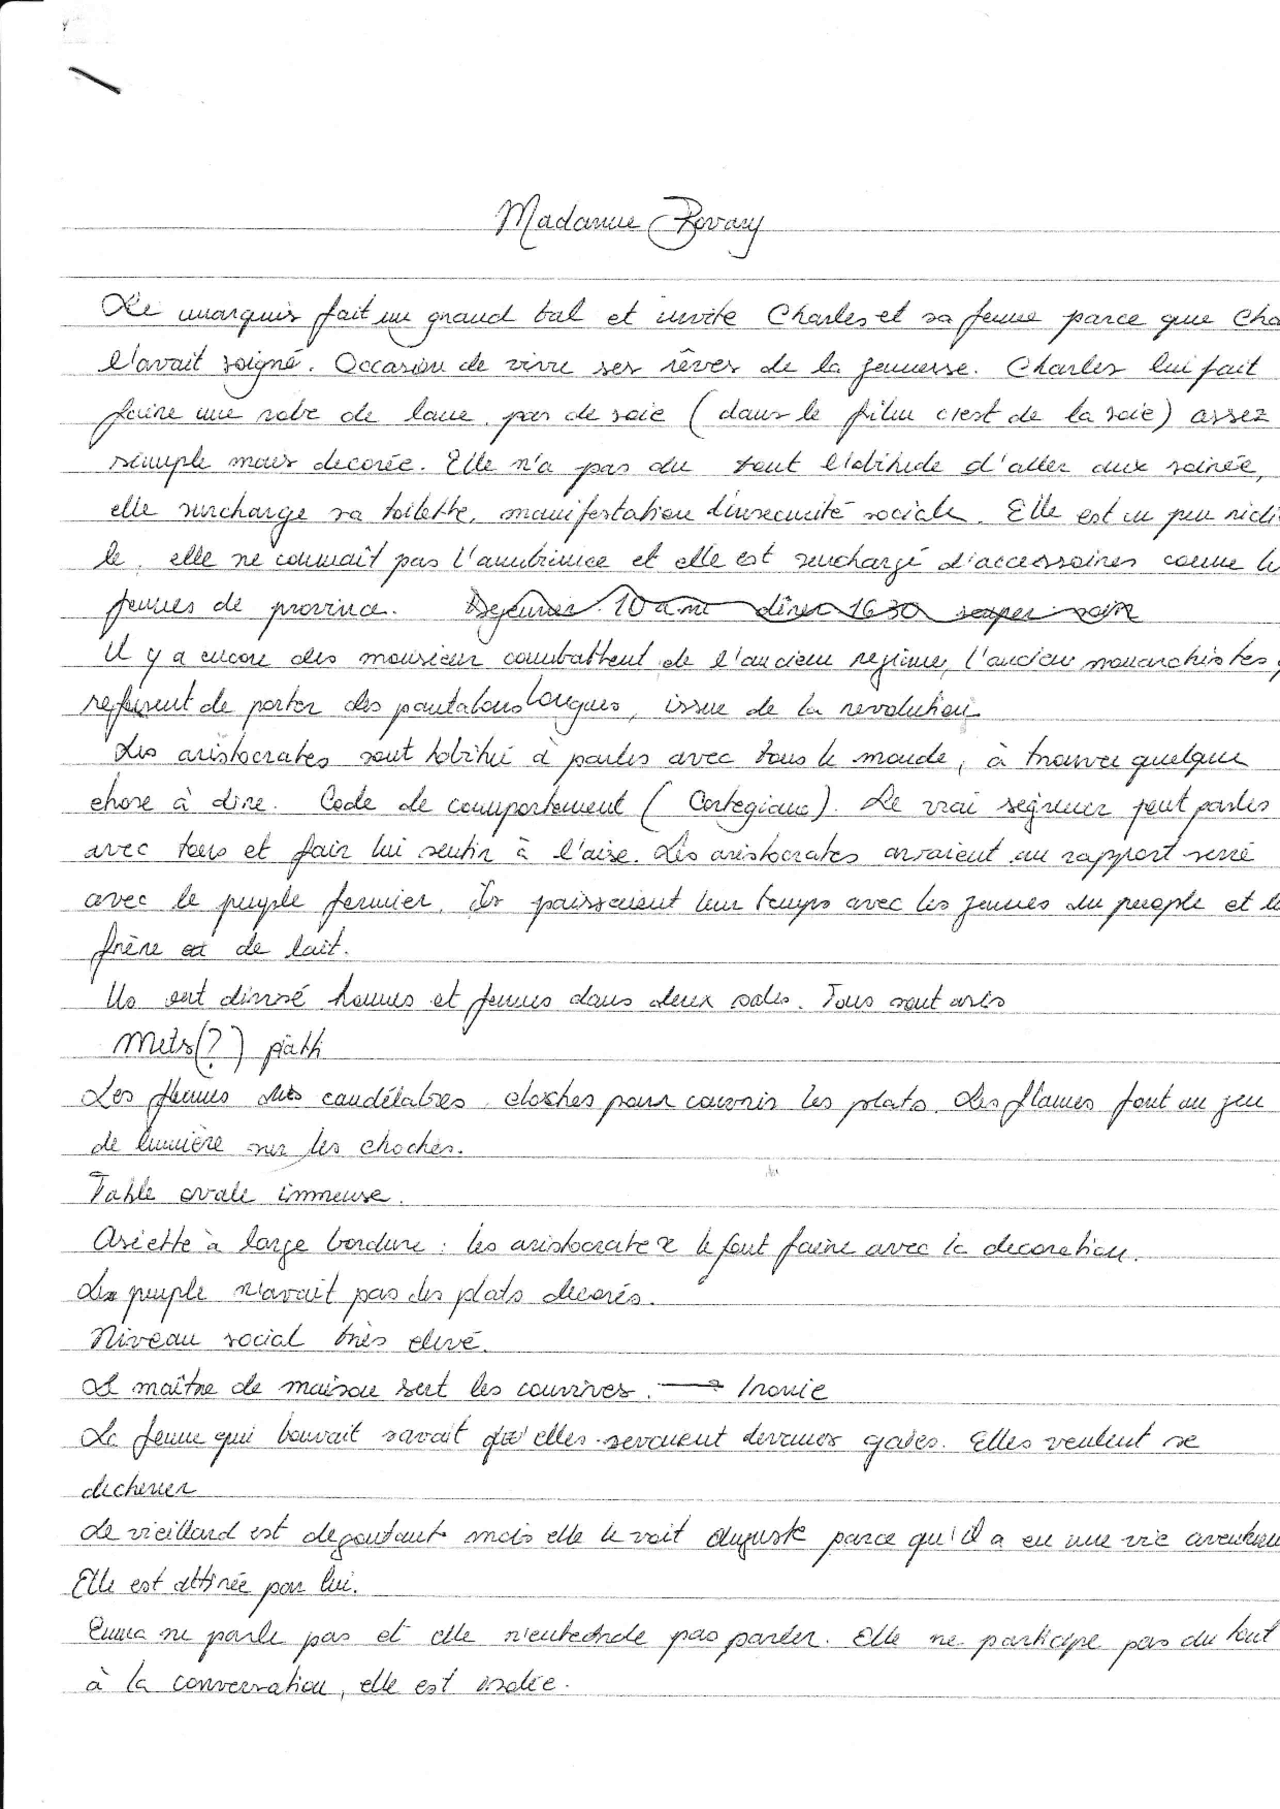 Madame Bovary
Le marquis fait un grand bal et invite Charles et sa femme parce que Cha
l'avait soigné. Occasion de vivre ses rêves de la jeunesse. Charles lui fait
faire une robe de laue pas de soie (dans le film c'est de la soie) assez
simple mais decorée. Elle n'a pas du tout l'abitude d'aller aux soirée,
elle surcharge sa toilette, manifestation d'insecurité sociale. Elle est un peu ridi
le, elle ne connaît pas l'ambience et elle est surchargé d'accessoires comme le
femmes de province. Dejeuner 10 am dîner 1630 souper soir
Il y a encore des monsieur combattent de l'ancien regime, l'ancien monarchistes
refusent de porter des pantalons longues, issue de la revolution
Les aristocrates sont habitué à parler avec tous le monde, à trouver quelque
chose à dire. Code de comportement (Cortegiano). Le vrai seigneur peut parler
avec tous et fair lui sentir à l'aise. Les aristocrates avaient un rapport serré
avec le peuple fermier, ils paissaient leur temps avec les jeunes du people et le
frère de lait.
Ils ont divisé hommes et femmes dans deux sales. Tous sont assis
Mets(?) piatti
Les flames des candélabres cloches pour couvrir les plats. Les flames font un jeu
de lumière sur les choches.
Table ovale immense.
Asiette à large bordure : les aristocrates le font faire avec la decoration.
Le peuple n'avait pas des plats decorés.
Niveau social très elevé.
Le maître de maison sert les convives. → Ironie
La femme qui bouvait savait qu'elles seraient devenues gaies. Elles veulent se
dechener
Le vieillard est degoutant mais elle le voit auguste parce qu'il a eu une vie
Elle est attirée par lui.
Emma ne parle pas et elle n'entednde pas parler. Elle ne participe pas du tout
à la conversation, elle est isolée.